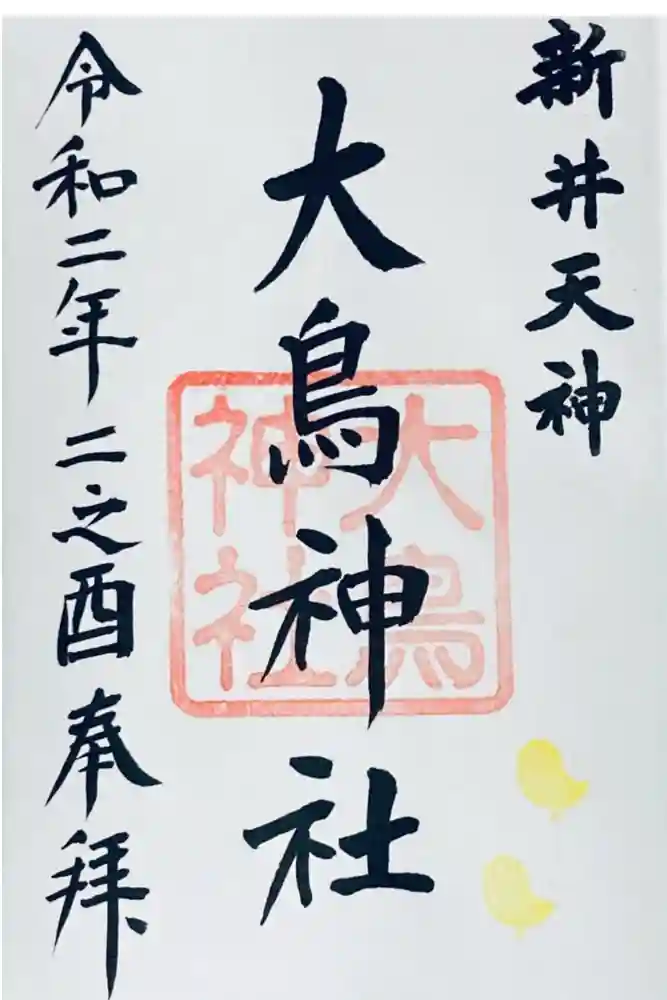 新井天神
大鳥神社
大鳥神社
令和二年二之酉奉拝